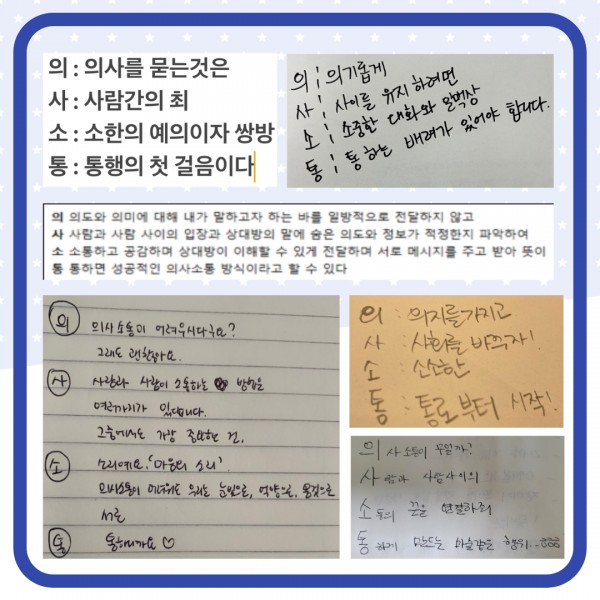 의 : 의사를 묻는것은
사 : 사람간의 최
소 : 소한의 예의이자 쌍방
통 : 통행의 첫 걸음이다
의 : 의기롭게
사 : 사이를 유지하려면
소 : 소중한 대화와 일맥상
통 : 통하는 배려가 있어야 합니다.
의 의도와 의미에 대해 내가 말하고자 하는 바를 일방적으로 전달하지 않고
사 사람과 사람 사이의 입장과 상대방의 말에 숨은 의도와 정보가 적정한지 파악하여
소 소통하고 공감하며 상대방이 이해할 수 있게 전달하며 서로 메시지를 주고 받아 뜻이
통 통하면 성공적인 의사소통 방식이라고 할 수 있다
의 의사소통이 어려우시다구요?
그래도 괜찮아요.
사 사람과 사람이 소통하는 방법은
여러가지가 있답니다.
그중에서도 가장 중요한 건.
소 소리예요. '마음의 소리'.
의사소통이 어려워도 우리는 눈빛으로, 억양으로, 몸짓으로
서로
통 통하니까요♡
의 : 의지를가지고
사 : 사회를 바꾸자!
소 : 소소한
통 : 통로부터 시작!
의사소통이 무얼까?
사람과 사람사이의
소통의 끈을 연결하여
통하게 만드는 마술같은 행위..